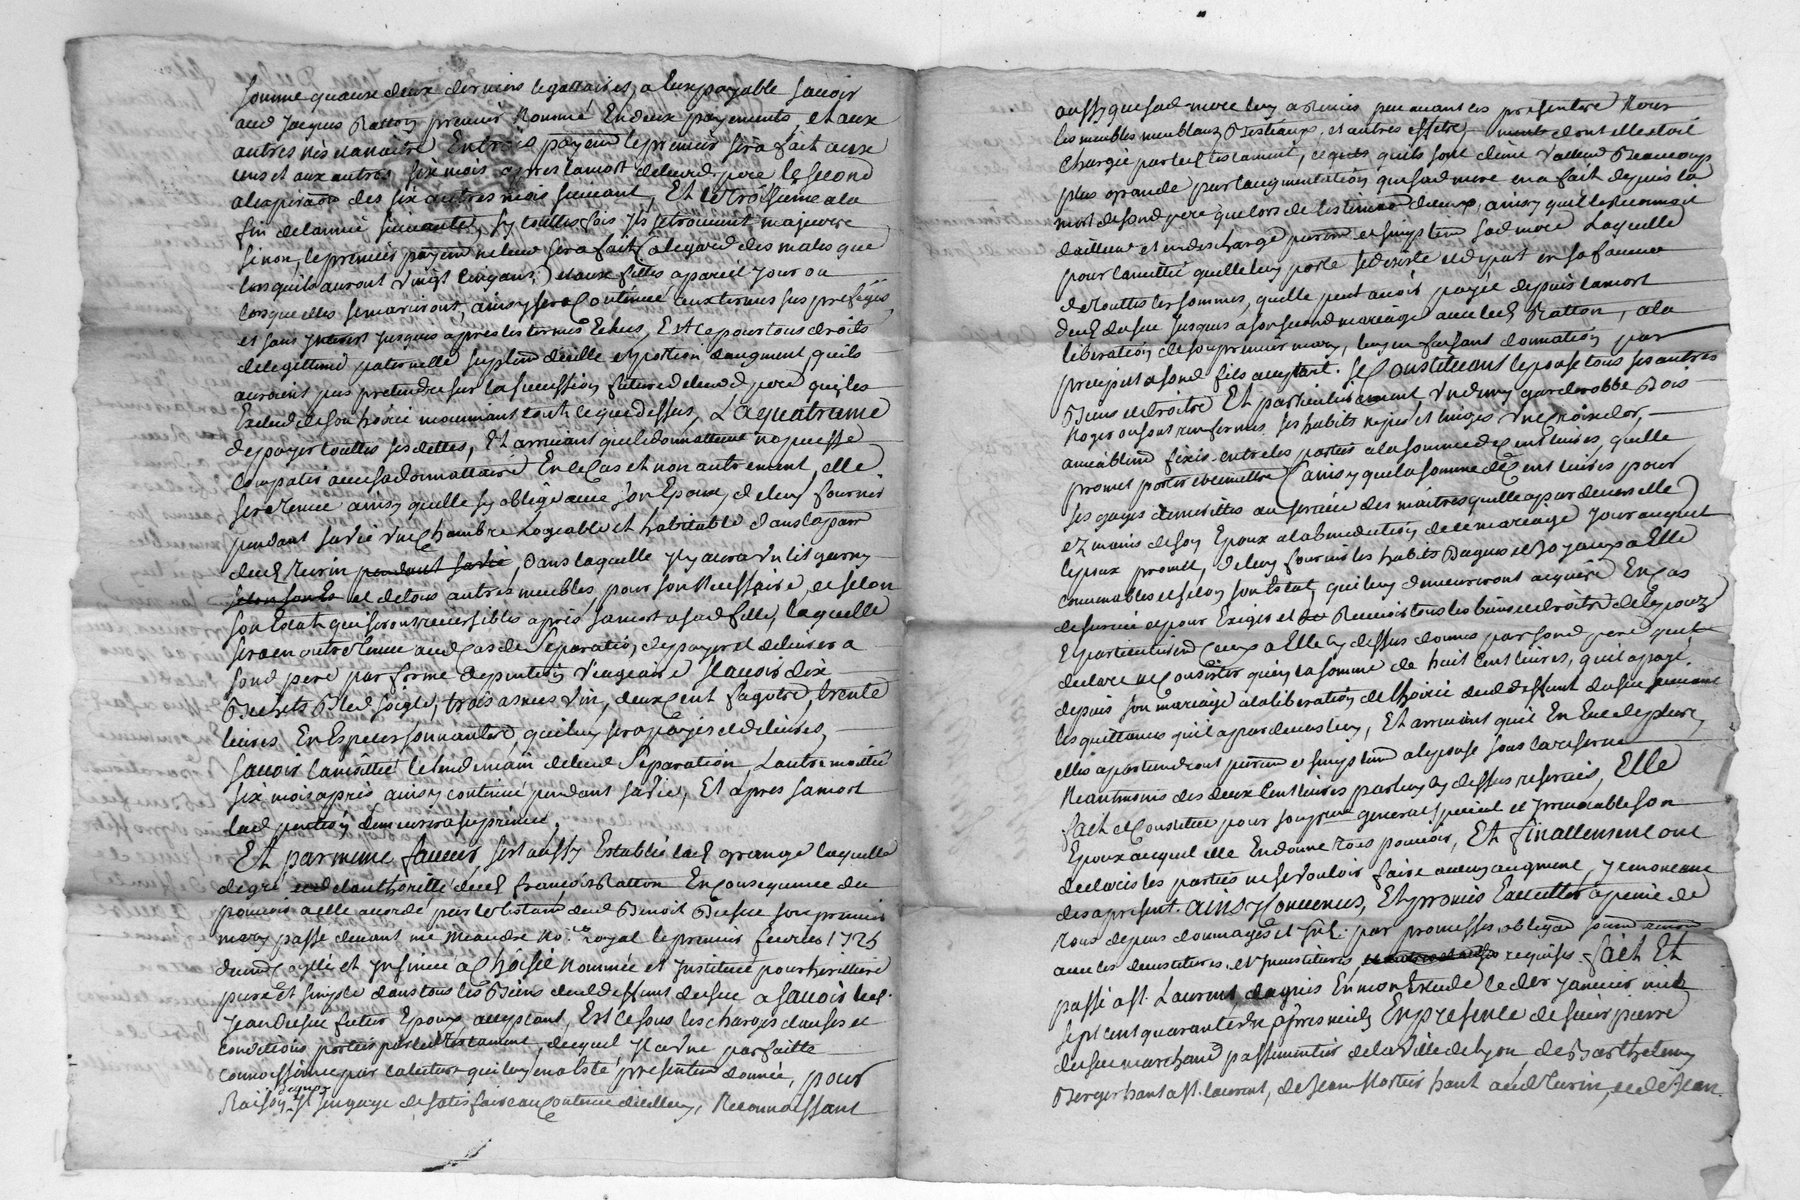 somme quaux deux derniers legattaires, a eux payable scavoir
aud Jacques Ratton premier nommé en deux payements, et aux
autres nés et a naitre en trois payem le premier sera fait aux
uns et aux autres six mois apres la mort de leurd pere le second
a lexpiration des six autres mois suivant, Et le troisieme a la
fin de lannée suivante, sy touttes fois ils se trouvent majeurs
sinon, le premier payem ne leur sera fait a legard des males que
lorsquils auront vingt cinq ans, et aux filles a pareil jour ou
lors quelles se marieront, ainsy sera continué aux termes sus prefigés
et sans interest jusques apres les termes echus, Est ce pour tous droits
de legittime paternelle suplem dicelle et portion daugment quils
auroient pus pretendre sur la succession future de leurd pere qui les
Exclud de son hoirie moyennant tout ce que dessus, La quatrieme
de payer touttes ses dettes, Et arrivant que le donnatteur ne puisse
compatir avec sa donnattaire En ce cas et non autrement, elle
sera tenue ainsy quelle sy oblige avec son Epoux, de luy fournir
pendant sa vie une chambre logeable et habitable dans la par
dud Rurin pendant sa vie, dans laquelle il y aura un lit garny
selon son Et et de tous autres meubles pour son necessaire, et selon
son Etat qui seront reversibles apres sa mort a sad fille, laquelle
sera en outre tenue aud cas de Separation, de payer et delivrer a
sond pere par forme de pention viagere scavoir dix
Bichets Bled seigle, trois asnees vin, deux cent fagots, trente
livres En Especes sonnantes, qui luy sera payés et delivrés,
scavoir la moittié le lendemain de leur Separation, Lautre moittié
six mois apres ainsy continué pendant sa vie, Et apres sa mort
lad pention demeurera suprimée
Et par meme faveur sest aussy Establie lad grange laquelle
de gré et de lauthorité dud françois Ratton En consequence du
pouvoir a elle accordé par le testam dud Benoit Dusuc son premier
mary passé devant me Meandre no.re royal le premier fevrier 1725
dument scellé et insinué a choisie nommée et institué pour herittiere
pure et simple dans tous les Biens dud deffunt dusuc a scavoir led.
Jean Dusuc futur Epoux acceptant, Est ce sous les charges clauses et
conditions portés par led testament, duquel il a une parfaitte
connoissance par la lecture qui luy en a Eté presentem donnée, pour
Raison dequoy il sengage de satisfaire au contenu dicelluy, Reconnoissant
aussy que sad mere luy a remis par avant ces presentes tous
les meubles meublants Bestiaux, et autres effets, dont elle etoit
chargée par led testament, quils sont dune valleur Beaucoup
plus grande par laugmentation que sad mere en a fait depuis la
mort de sond pere que lors de lestimation diceux, ainsy quil le reconnoit
dailleur et en descharge purem et simplem sad mere Laquelle
pour lamittié quelle luy porte se desiste et depart en sa faveur
de touttes les sommes, quelle peut avoir payée depuis la mort
dud dusuc jusques a son second mariage avec led Ratton, a la
liberation de son premier mary, luy en faisant donnation par
preciput a sond fils acceptant. Se Constituent lepouse tous ses autres
Biens et droits Et particulierement un garderobbe Bois
Noyer ou sont renfermés ses habits nipes et linges une croix dor,
ameablem fixés entre les parties a la somme de cent livres, quelle
promet porter et remettre ainsy que la somme de cent livres pour
ses gages et merittes au service des maitres quelle a par devers elle
ez mains de son Epoux a la benediction de ce mariage jour auquel
lepoux promet, de luy fournir les habits Bagues et Joyaux a Elle
convenables et selon son Etat, qui luy demeureront acquis En cas
de survie a pour Exiger et Recevoir tous les biens et droits de lepouze
Et particulierem ceux a Elle cy dessus donnés par sond pere quil
declare ne consister quen la somme de huit cent livres, quil a payé
depuis son mariage a la liberation de lhoirie dud deffunt dusuc suivant
les quittances quil a par devers luy, Et arrivant quil En Eut de plus
elles apartiendront purem et simplem a lepouse sous la reserve
Neantmoins des deux cent livres par luy cy dessus reservés, Elle
fait et Constitue pour son pro.r general special et irrevocable son
Epoux auquel elle En donne tous pouvoir, Et finallement ont
declarés les parties ne se vouloir faire aucun augment, y renoncant
des a present. Ainsy Convenus, Et promis Executter a peine de
tous depens dommages et int. par promesses, obligaõ soum renon
avec les devestitures, et investitures, requises. fait Et
passé a St. Laurent dagnis En mon Etude le der janvier mil
sept cent quarante un apres midy En presence de sieur pierre
dusuc marchand passementier de la ville de Lyon de Barthelemy
Berger hant a St. laurent, de Jean Mortier hant aud Rurin, et de Jean